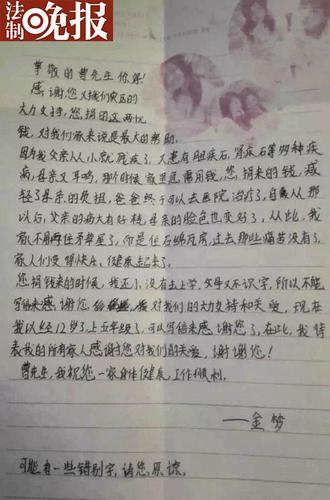 法制晚报
尊敬的曹先生你好!
感谢您对我们家的
大力支持,您捐困这两比
钱,对我们家来说是最大的帮助.
因为我父亲从小就残疾了,又患有胆尿石,肾尿石等多种疾
病,母亲又耳鸣,那个时候家里急需用钱,您捐来的钱,减
轻了母亲的负担,爸爸终于可以去医院治疗了,自从那
以后,父亲的病大有好转,母亲的脸色也变好了,从此,我
家不用再住茅草屋了,而是住石棉瓦房,过去那些痛苦没有了.
家人们变得快乐,健康起来了.
您捐钱来的时候,我还小,没有去上学,父母又不识字,所以不能
写信来感谢您,对我们的大力支持和关爱,现在
我以经12岁了,上五年级了,可以写信来感谢您了,在此,我替
表我的所有家人感谢您对我们的关爱,谢谢您!
曹先生,我祝您一家身体健康,工作顺利.
——金梦
可能有一些错别字,请您原谅.